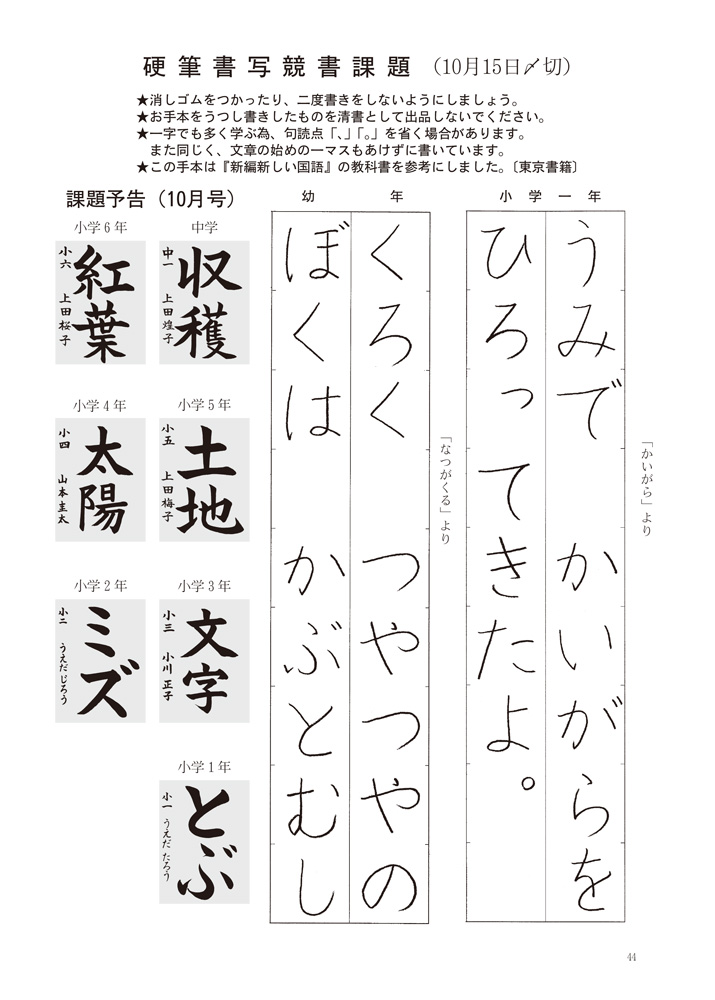 硬筆書写競書課題 （10月15日〆切）
★消しゴムをつかったり、二度書きをしないようにしましょう。
★お手本をうつし書きしたものを清書として出品しないでください。
★一字でも多く学ぶ為、句読点「、」「。」を省く場合があります。
また同じく、文章の始めの一マスもあけずに書いています。
★この手本は『新編新しい国語』の教科書を参考にしました。〔東京書籍〕
小学一年
「かいがら」より
うみで かいがらを
ひろってきたよ。
幼年
「なつがくる」より
くろく つやつやの
ぼくは かぶとむし
課題予告（10月号）
中学
収穫
中一 上田煌子
小学6年
紅葉
小六 上田桜子
小学5年
土地
小五 上田梅子
小学4年
太陽
小四 山本圭太
小学3年
文字
小三 小川正子
小学2年
ミズ
小二 うえだじろう
小学1年
とぶ
小一 うえだたろう
44